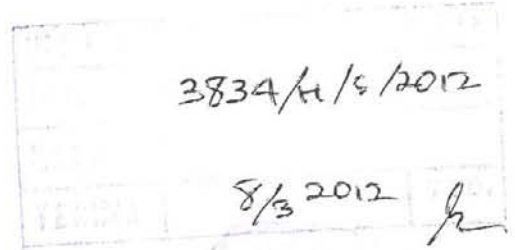 3834/H/S/2012
8/3 2012